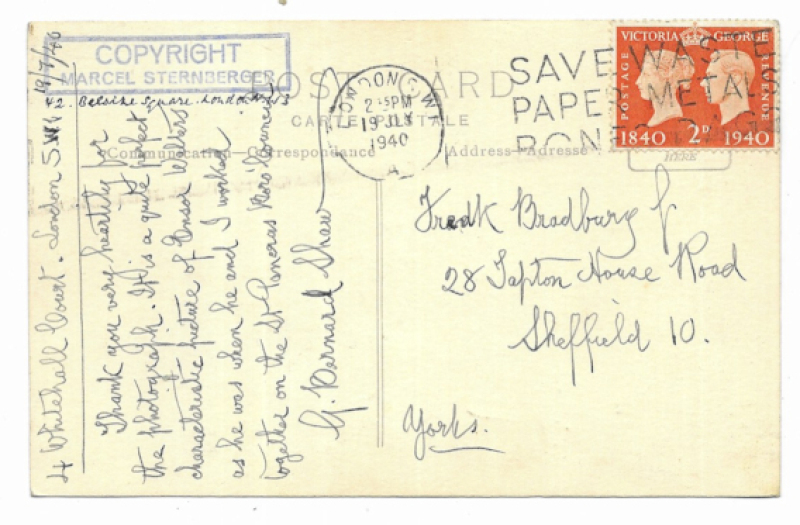 COPYRIGHT
MARCEL STERNBERGER
42. Belsize Square. London
POST CARD
CARTE POSTALE
Communication-Correspondance
Address-Adresse
LONDON S.W.1
2-15PM
19 JLY
1940
A
SAVE WASTE
PAPER METAL
BONES RAGS
VICTORIA GEORGE
POSTAGE
REVENUE
1840 2D 1940
HERE
4 Whitehall Court. London S.W.1 19/7/40
Thank you very heartily for
the photograph. It is a quite perfect
characteristic picture of Ensor Walters
as he was when he and I worked
together on the St Pancras Boro' Council
G. Bernard Shaw
Bradbury
28 Tapton House Road
Sheffield 10.
Yorks.